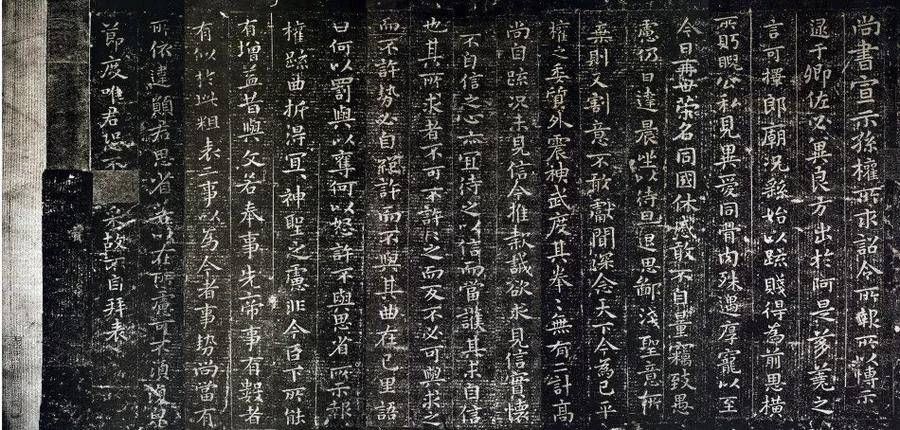 尚書宣示孫權所求詔令所報所以博示
逮于卿佐必冀良方出於阿是芻蕘之
言可擇郎廟況繇始以疏賤得為前恩橫
所盻睨公私見異愛同骨肉殊遇厚寵以至
今日再世榮名同國休慼敢不自量竊致愚
慮仍日達晨坐以待旦退思鄙淺聖意所
棄則又割意不敢獻聞深念天下今為已平
權之委質外震神武度其拳〻無有二計高
尚自疏況未見信今推款誠欲求見信實懷
不自信之心亦宜待之以信而當護其未自信
也其所求者不可不許〻之而反不必可與求之
而不許勢必自絕許而不與其曲在己里語
曰何以罰與以奪何以怒許不與思省所示報
權疏曲折得宜神聖之慮非今臣下所能
有增益昔與文若奉事先帝事有數者
有似於此粗表二事以為今者事勢尚當有
所依違願君思省若以在所慮可不須
節度唯君恐不采故不自拜表